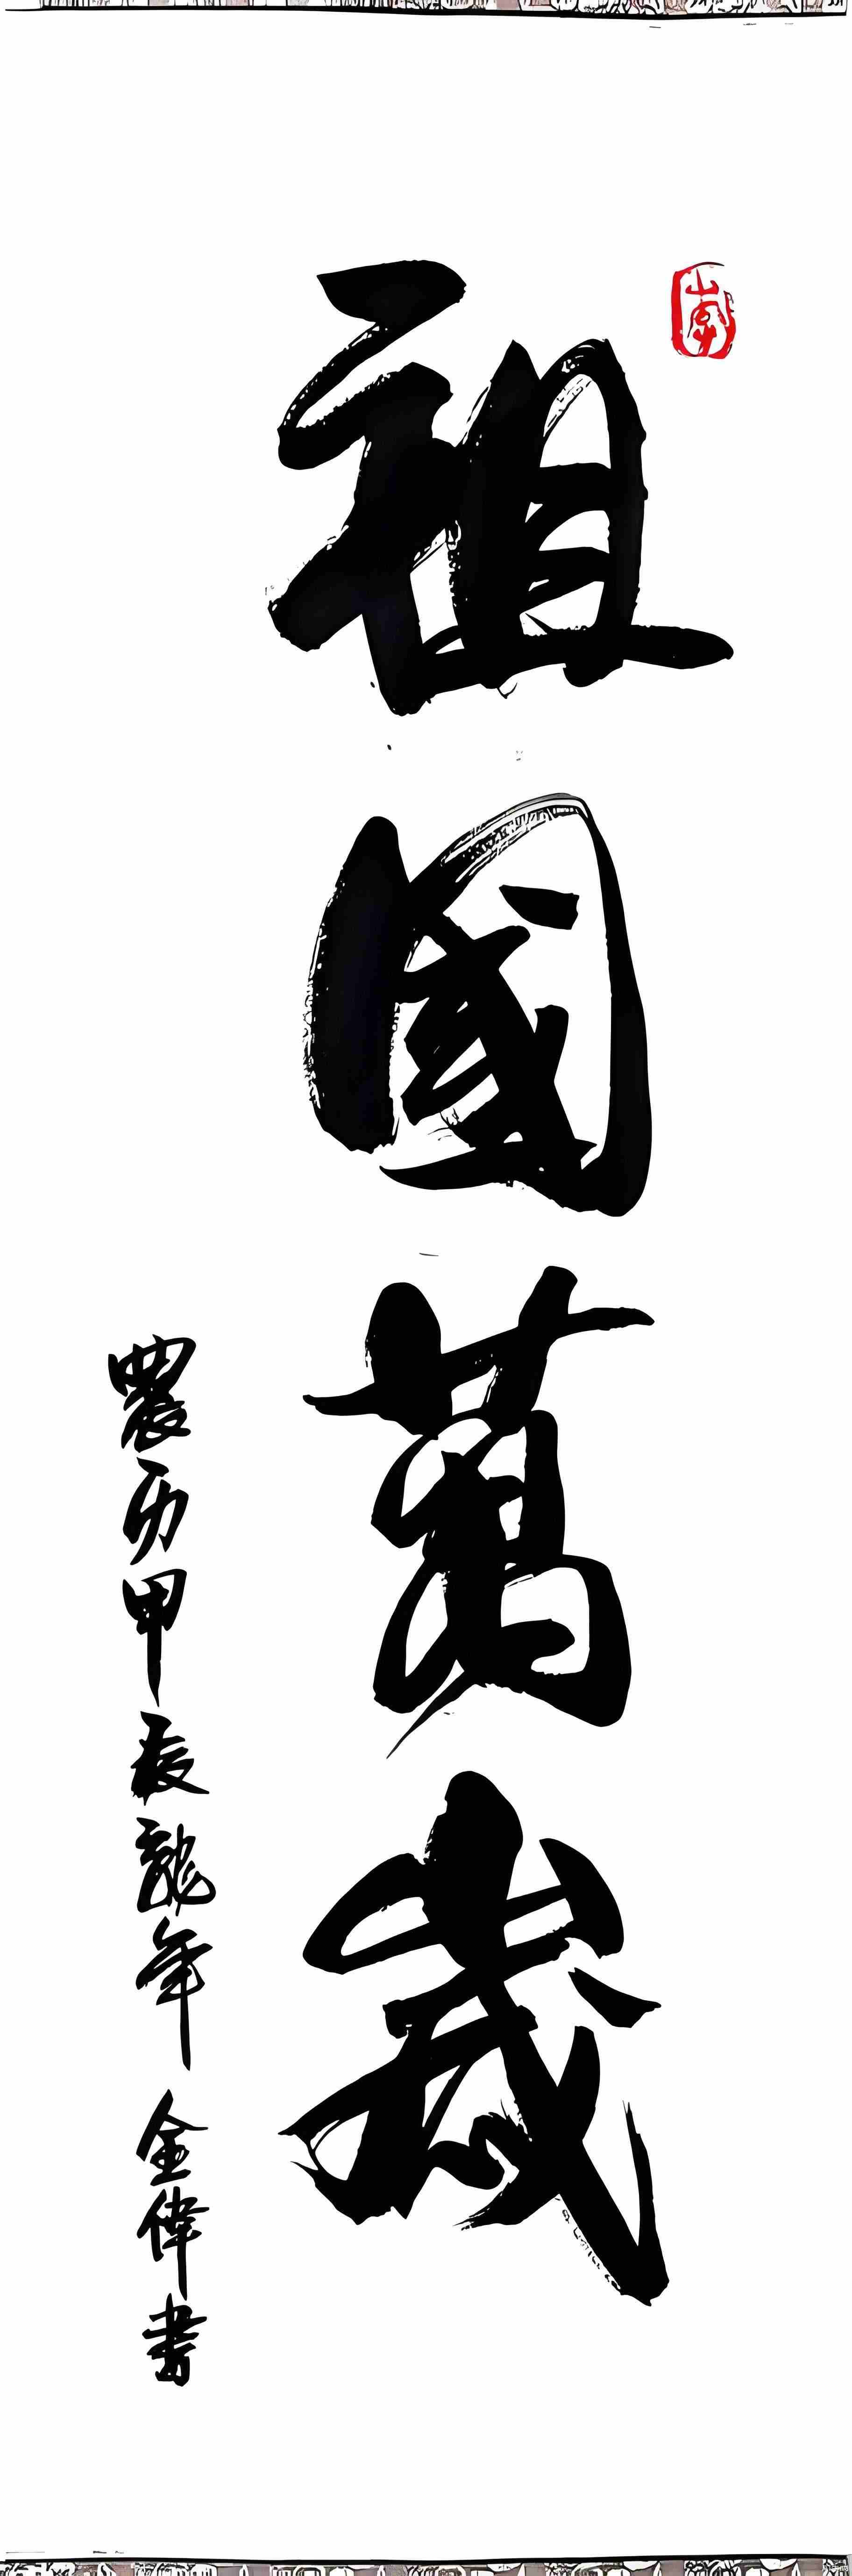 祖國萬歲
農历甲辰龍年 金偉書